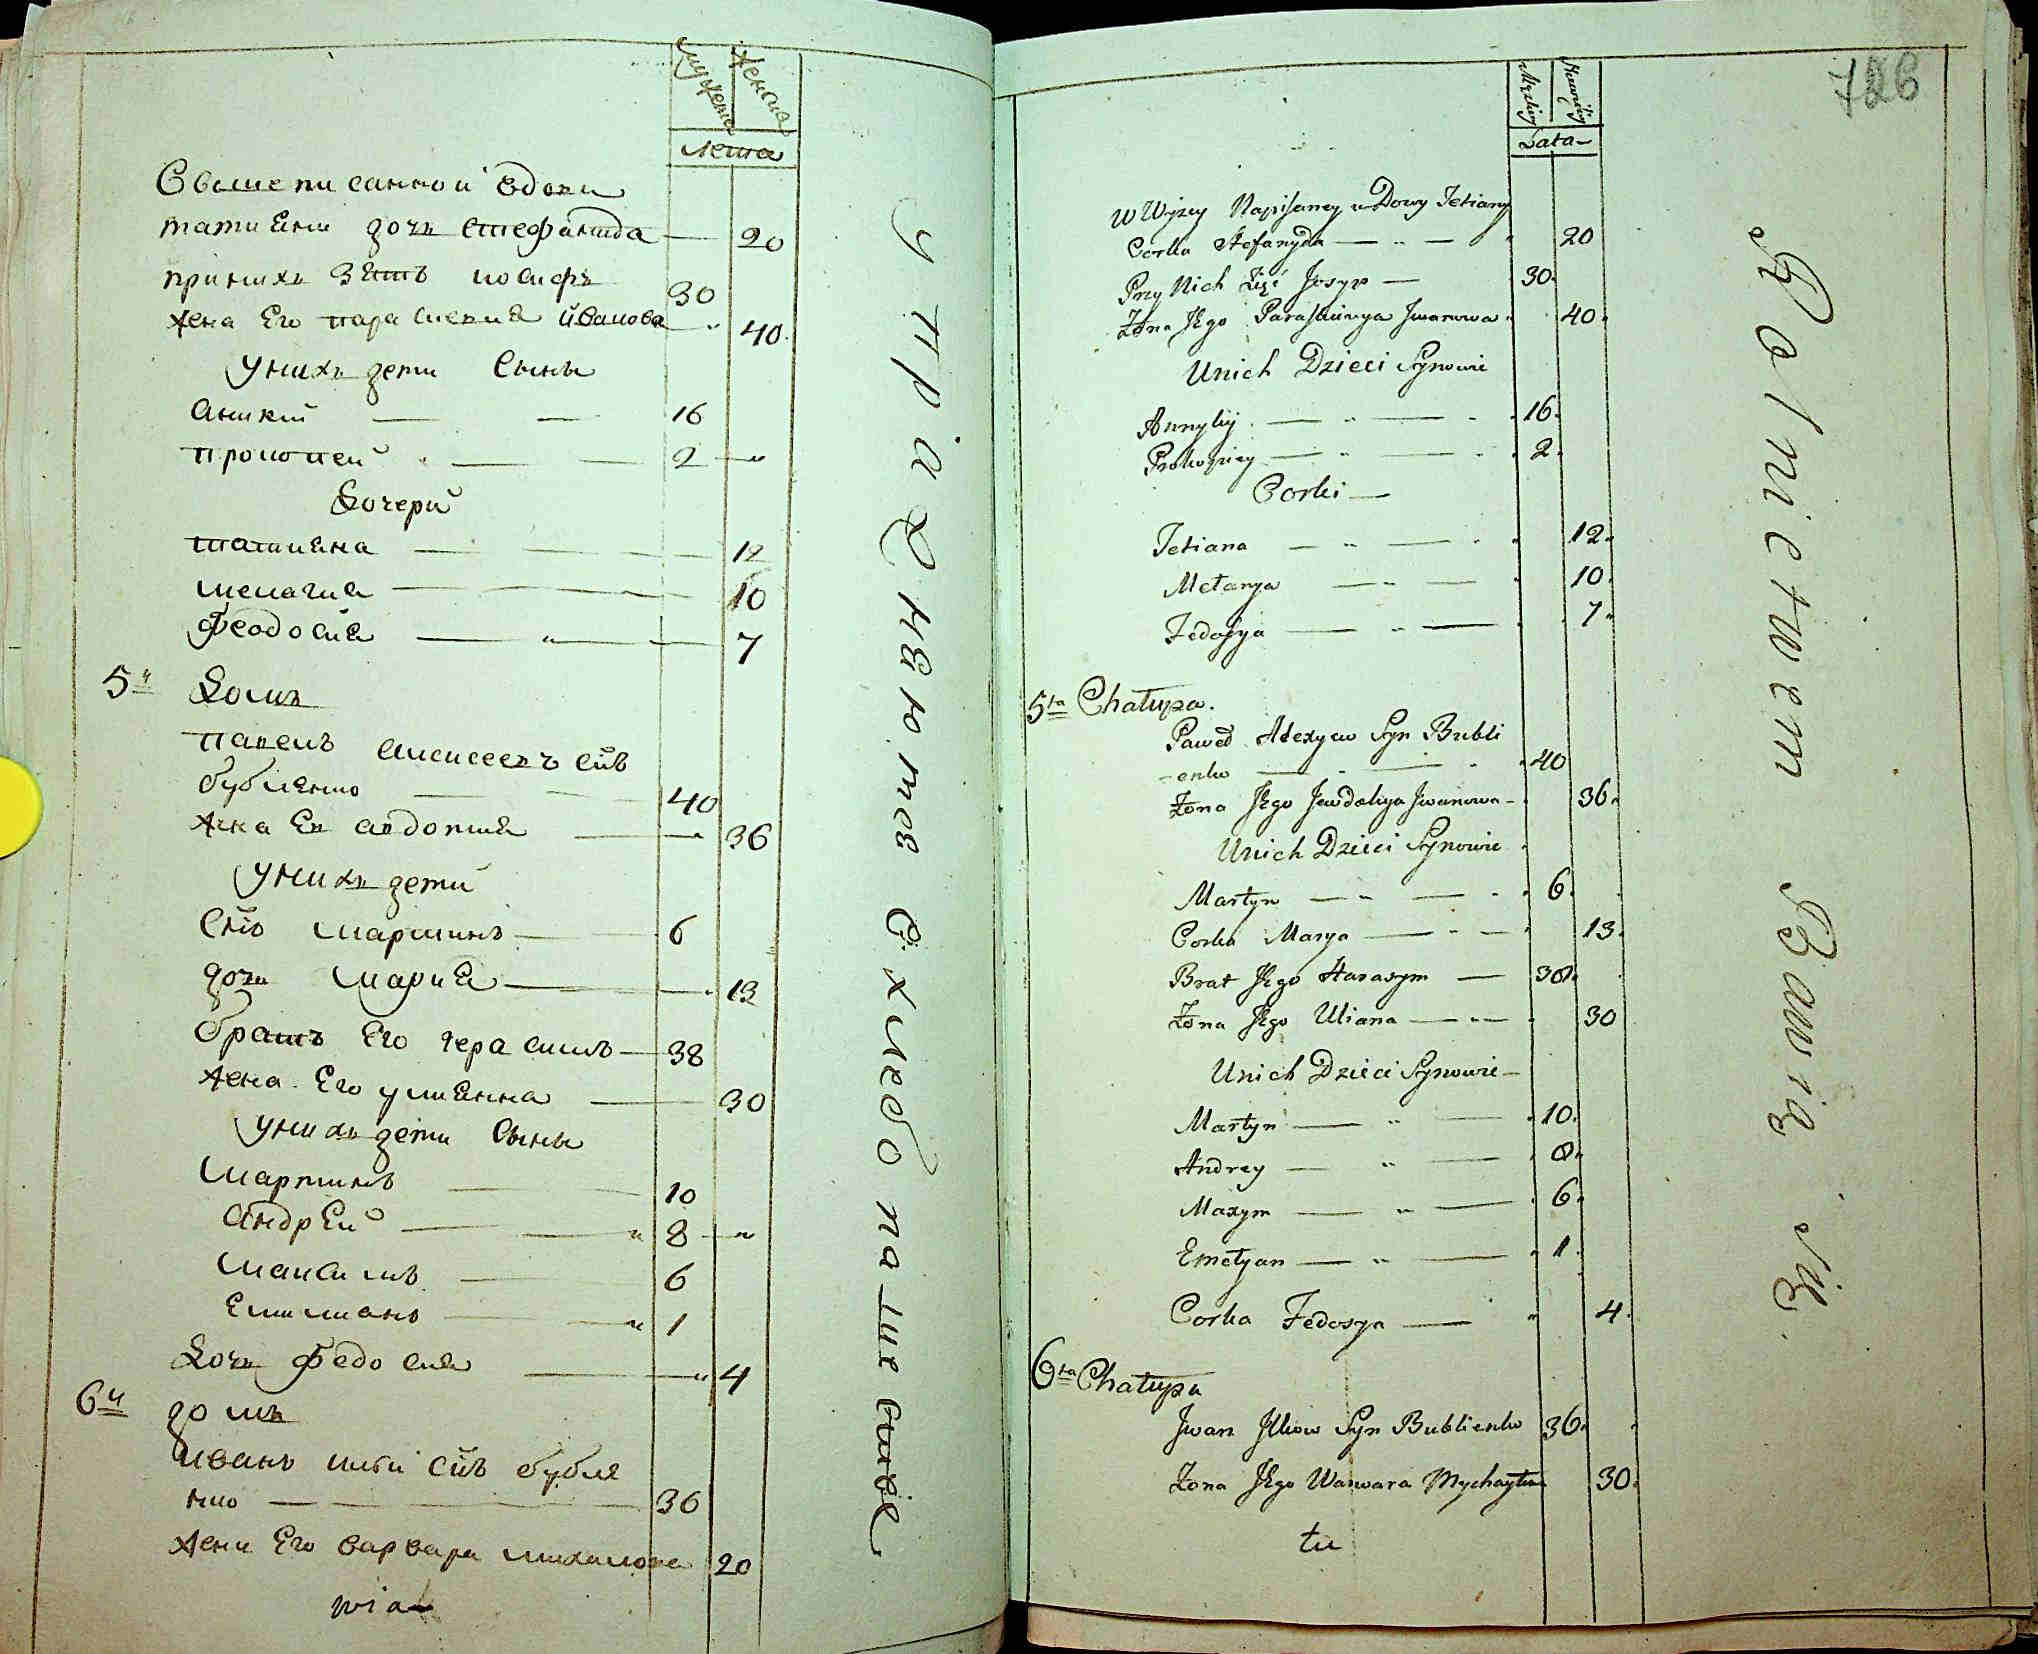 мужеска
женска
лета
Свыше писанной вдовы
татияны дочь стефанида — 20
при нихъ зять иосифъ 30
жена Его параскевия иванова — 40.
У нихъ дети Сыны
аникий — — 16
прокопей — — 2 — „
Дочери
татияна — — — 12
мелания — — — 10
Феодосия — „ — 7
5й Домъ
павелъ алексеевъ снъ
бубленко — — 40
жена Ев авдотия — 36
У нихъ дети
Снъ мартинъ — 6
дочь Мария — 13
братъ Его герасимъ — 38
жена Его улиянна — 30
У нихъ дети Сыны
Мартинъ — 10
АндрЕй — „ 8 — „
Максимъ — 6
Емилианъ — „ 1
Дочь Федосия — „ 4
6й домъ
иванъ илъи снъ бубле
нко — — 36
жена Его варвара михайлова 20
wia
упражняются в хлебопашестве
726
Męzkiey
Lata
W Wyzey Napisaney wDowy Tetiany
Corka Stefanyda — „ — 20
Przy Nich Zięć Josyp — 30.
Żona Jego Paraskiewya Iwanowa „ 40.
Unich Dzieci Synowie
Annykiy — „ — 16.
Prokopiey — „ — 2.
Corki —
Tetiana — „ — 12.
Mełanya — „ — 10.
Fedosya — „ — 7.
5ta Chałupa.
Paweł Alexyew Syn Bubli
-enko — — 40
Żona Jego Jewdokya Iwanowa — 36.
Unich Dzieci Synowie
Martyn — „ — 6.
Corka Marya — „ — 13.
Brat Jego Harasym — 38.
Żona Jego Uliana — „ — 30
Unich Dzieci Synowie —
Martyn — „ — 10.
Andrey — „ — 8.
Maxym — „ — 6.
Emełyan — „ — 1.
Corka Fedosya — „ 4.
6ta Chałupa
Jwan Jlkow Syn Bublienko 36.
Żona Jego Warwara Mychayłowa 30.
tu
Rolnictwem Bawią się